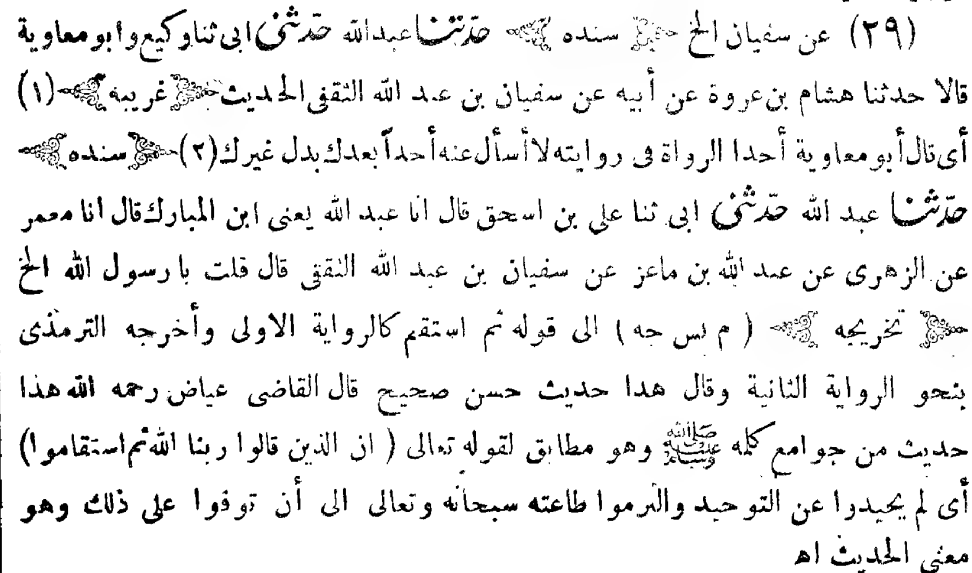 (٢٩) عن سفيان الخ ﴿ سنده ﴾ حدّثنا عبدالله حدّثنى ابى ثنا وكيع وابو معاوية
قالا حدثنا هشام بن عروة عن أبيه عن سفيان بن عبد الله الثقفى الحديث ﴿ غريبه ﴾ (١)
أى قال أبو معاوية أحدا الرواة فى روايته لا أسأل عنه أحداً بعدك بدل غيرك (٢) ﴿ سنده ﴾
حدّثنا عبد الله حدّثنى ابى ثنا على بن اسحق قال انا عبد الله يعنى ابن المبارك قال انا معمر
عن الزهرى عن عبد الله بن ماعز عن سفيان بن عبد الله الثقفى قال قلت يا رسول الله الخ
﴿ تخريجه ﴾ ( م نس جه ) الى قوله ثم استقم كالرواية الاولى وأخرجه الترمذى
بنحو الرواية الثانية وقال هذا حديث حسن صحيح قال القاضى عياض رحمه الله هذا
حديث من جوامع كلمه ﷺ وهو مطابق لقوله تعالى ( ان الذين قالوا ربنا الله ثم استقاموا )
أى لم يحيدوا عن التوحيد والتزموا طاعته سبحانه وتعالى الى أن توفوا على ذلك وهو
معنى الحديث اه